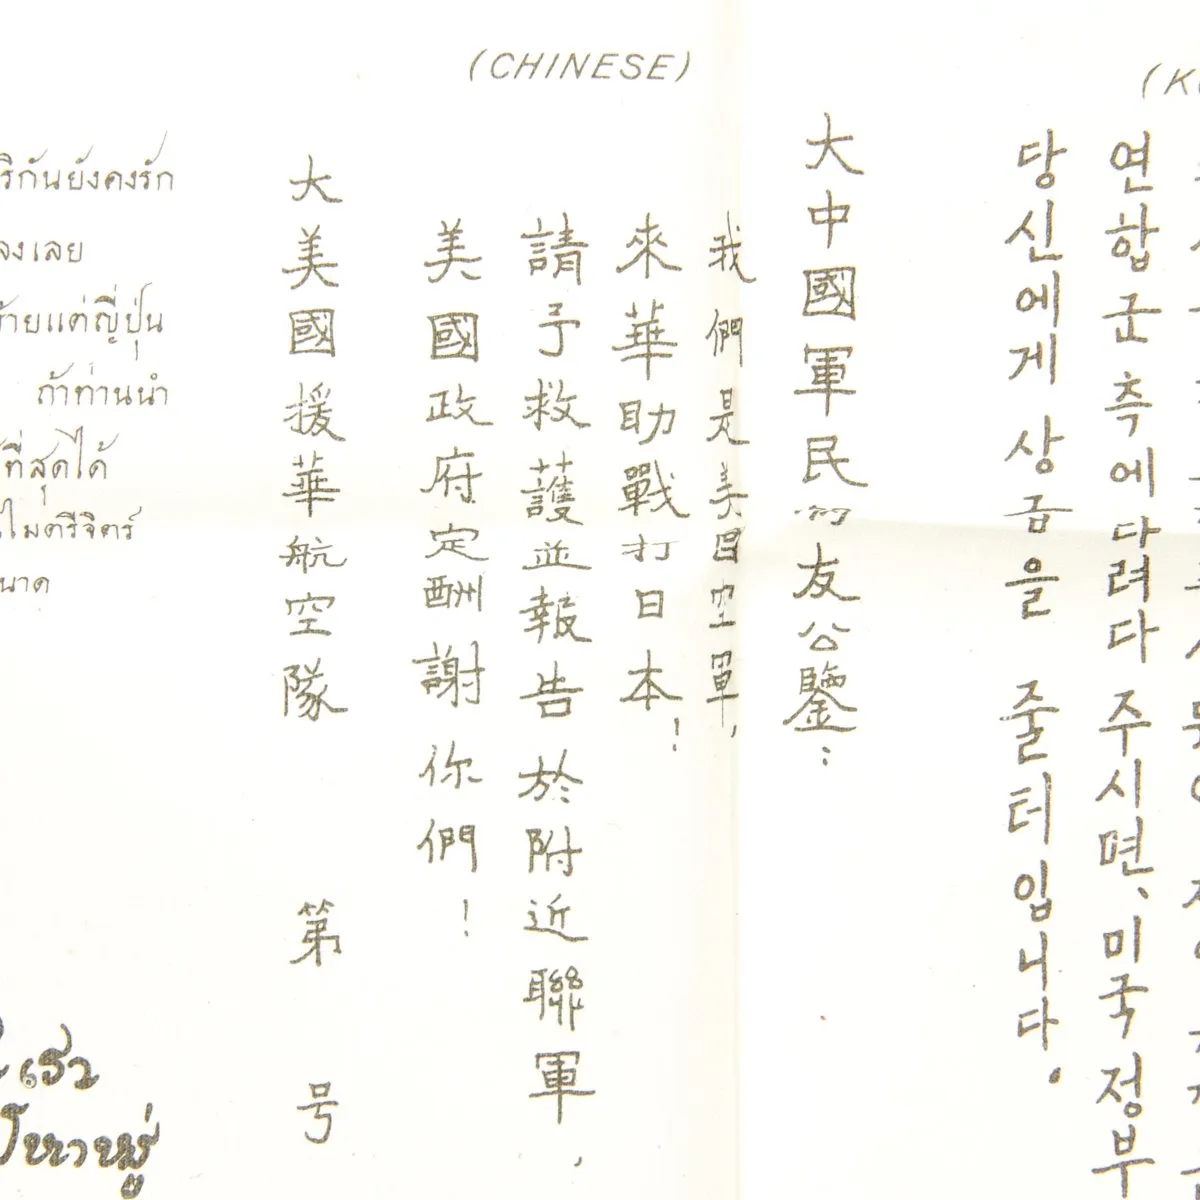 (CHINESE)
大中國軍民的友公鑒：
我們是美国空軍，
來華助戰打日本！
請予救護並報告於附近聯軍，
美國政府定酬謝你們！
大美國援華航空隊 第 号
연합군측에 다려다 주시면、미국정부
당신에게 상금을 줄터입니다.
ริกันยังคงรัก
ลงเลย
ร้ายแต่ญี่ปุ่น
ถ้าท่านนำ
ที่สุดได้
ไมตรีจิตร์
นาด